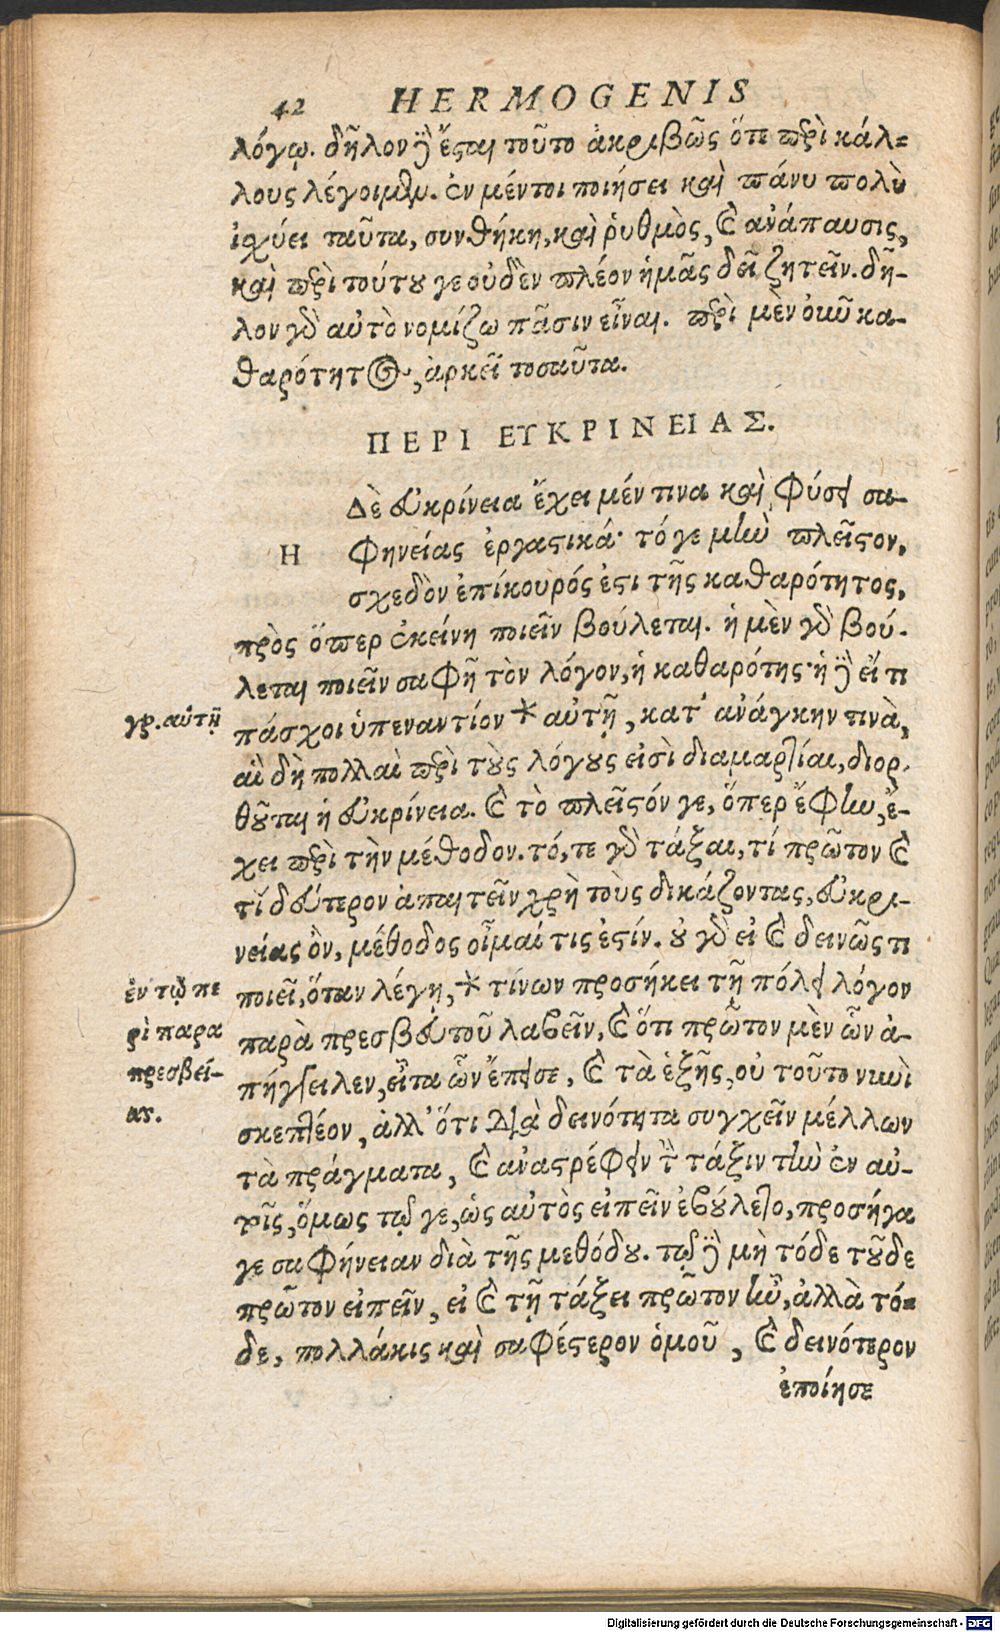 42 HERMOGENIS
λόγῳ. δῆλον δὲ ἔσται τοῦτο ἀκριβῶς ὅτε περὶ κάλ-
λους λέγοιμεν. ἐν μέντοι ποιήσει καὶ πάνυ πολὺ
ἰσχύει ταῦτα, συνθήκη, καὶ ῥυθμὸς, καὶ ἀνάπαυσις,
καὶ περὶ τούτου γε οὐδὲν πλέον ἡμᾶς δεῖ ζητεῖν. δῆ-
λον γὰρ αὐτὸ νομίζω πᾶσιν εἶναι. περὶ μὲν οὖν κα-
θαρότητος, ἀρκεῖ τοσαῦτα.
ΠΕΡΙ ΕΥΚΡΙΝΕΙΑΣ.
Η Δὲ εὐκρίνεια ἔχει μέν τινα καὶ φύσει σα-
φηνείας ἐργαστικά· τό γε μὴν πλεῖστον,
σχεδὸν ἐπίκουρός ἐστι τῆς καθαρότητος,
πρὸς ὅπερ ἐκείνη ποιεῖν βούλεται. ἡ μὲν γὰρ βού-
λεται ποιεῖν σαφῆ τὸν λόγον, ἡ καθαρότης· ἡ δὲ εἴ τι
γρ. αὐτῇ
πάσχοι ὑπεναντίον * αὐτῇ, κατ' ἀνάγκην τινὰ,
αἳ δὴ πολλαὶ περὶ τοὺς λόγους εἰσὶ διαμαρτίαι, διορ-
θοῦται ἡ εὐκρίνεια. καὶ τὸ πλεῖστόν γε, ὅπερ ἔφην, ἔ-
χει περὶ τὴν μέθοδον. τό, τε γὰρ τάξαι, τί πρῶτον καὶ
τί δεύτερον ἀπαιτεῖν χρὴ τοὺς δικάζοντας, εὐκρι-
νείας ὂν, μέθοδος οἶμαί τις ἐστίν. οὐ γὰρ εἰ καὶ δεινῶς τι
ἐν τῷ πε
ρὶ παρα
πρεσβεί-
ας.
ποιεῖ, ὅταν λέγῃ, * τίνων προσήκει τῇ πόλει λόγον
παρὰ πρεσβευτοῦ λαβεῖν, καὶ ὅτι πρῶτον μὲν ὧν ἀ-
πήγγειλεν, εἶτα ὧν ἔπεισε, καὶ τὰ ἑξῆς, οὐ τοῦτο νυνὶ
σκεπτέον, ἀλλ' ὅτι διὰ δεινότητα συγχεῖν μέλλων
τὰ πράγματα, καὶ ἀναστρέφειν τὴν τάξιν τὴν ἐν αὐ-
τοῖς, ὅμως τῷ γε, ὡς αὐτὸς εἰπεῖν ἐβούλετο, προσήγα
γε σαφήνειαν διὰ τῆς μεθόδου. τῷ δὲ μὴ τόδε τοῦδε
πρῶτον εἰπεῖν, εἰ καὶ τῇ τάξει πρῶτον ἦν, ἀλλὰ τό-
δε, πολλάκις καὶ σαφέστερον ὁμοῦ, καὶ δεινότερον
ἐποίησε
Digitalisierung gefördert durch die Deutsche Forschungsgemeinschaft - DFG